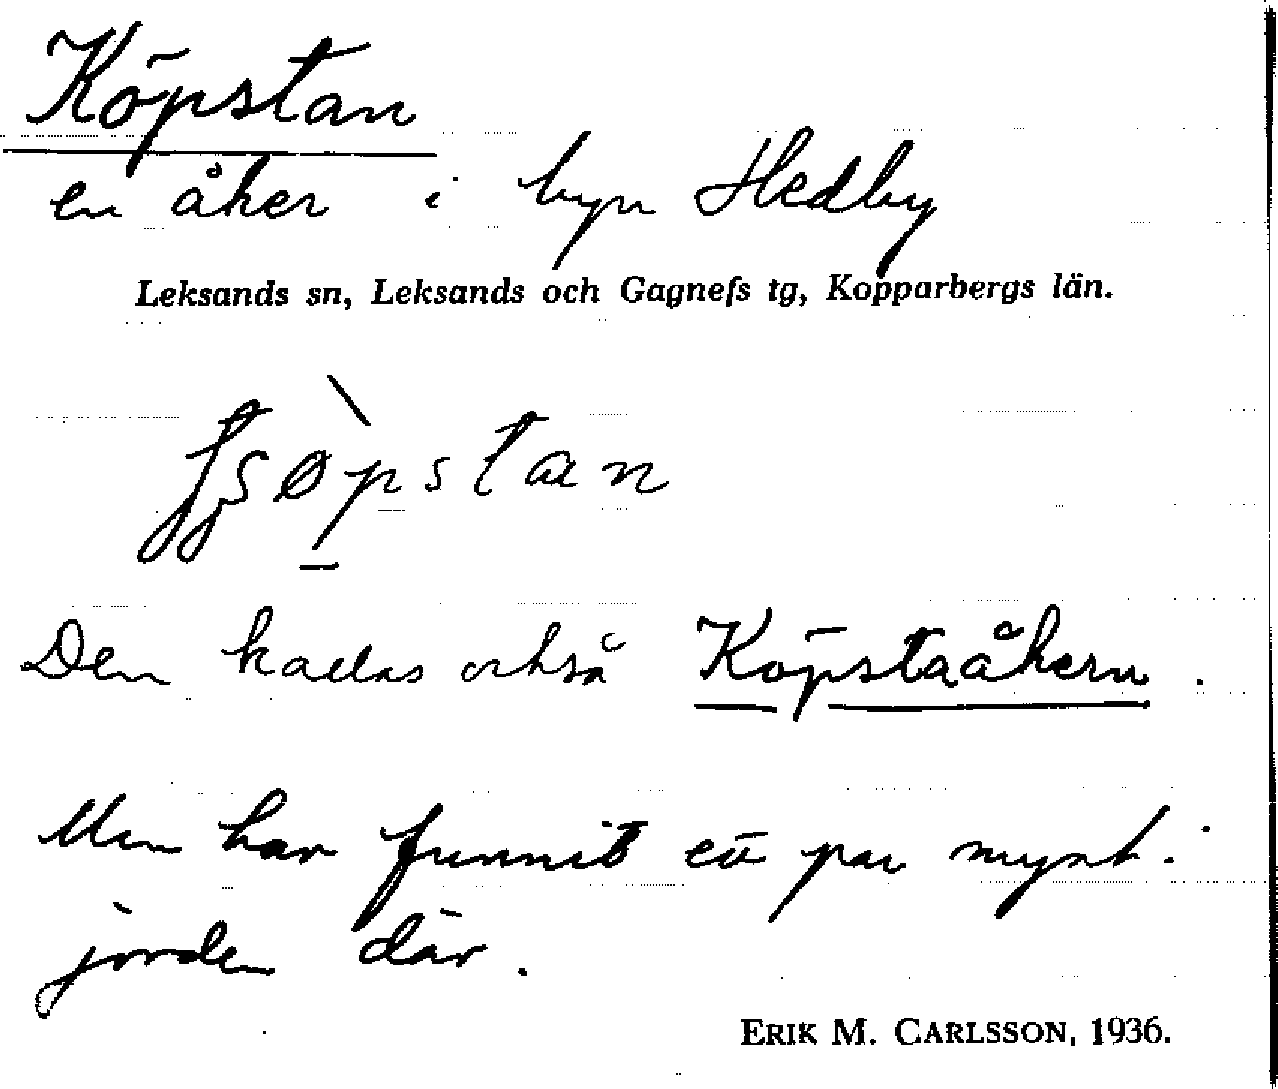 Köpstan
en åker i byn Hedby
Leksands sn, Leksands och Gagnefs tg, Kopparbergs län.
Den kallas också Köpstaåkern.
Men har funnit ett par mynt i
jorden där.
ERIK M. CARLSSON, 1936.